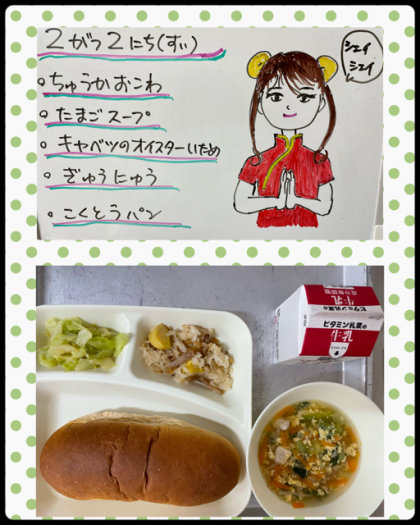 2がつ2にち(すい)
シェイ
シェイ
・ちゅうかおこわ
・たまごスープ
・キャベツのオイスターいため
・ぎゅうにゅう
・こくとうパン
牛乳
ビタミン乳業の